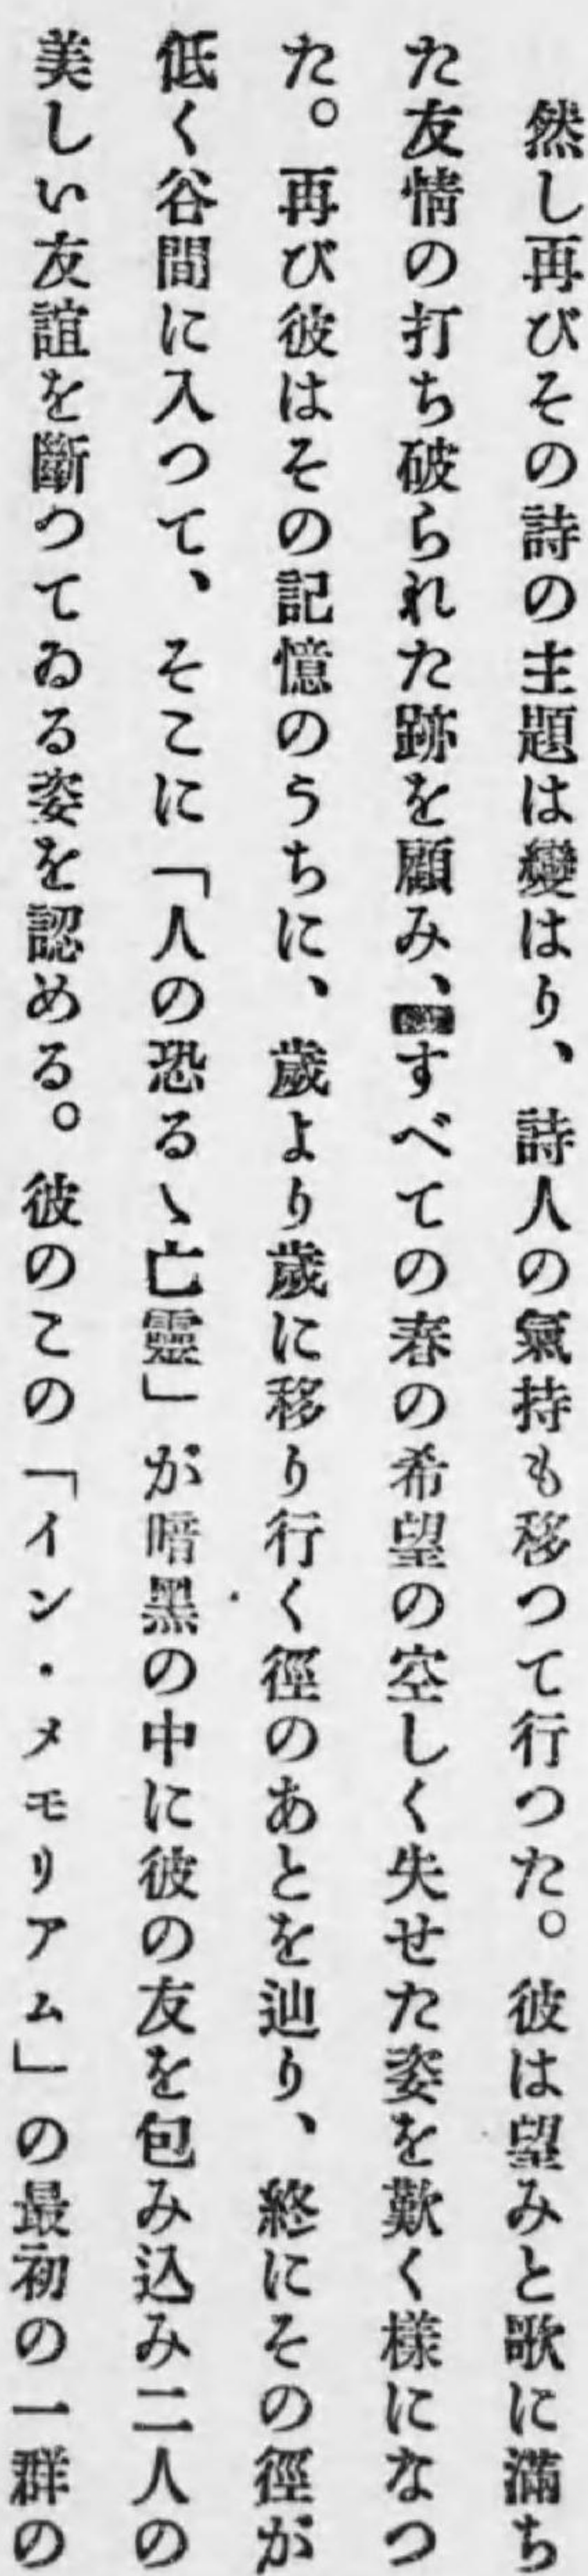 然し再びその詩の主題は變はり、詩人の氣持も移つて行つた。彼は望みと歌に滿ち
た友情の打ち破られた跡を顧み、すべての春の希望の空しく失せた姿を歎く樣になつ
た。再び彼はその記憶のうちに、歲より歲に移り行く徑のあとを辿り、終にその徑が
低く谷間に入つて、そこに「人の恐るゝ亡靈」が暗黑の中に彼の友を包み込み二人の
美しい友誼を斷つてゐる姿を認める。彼のこの「イン・メモリアム」の最初の一群の